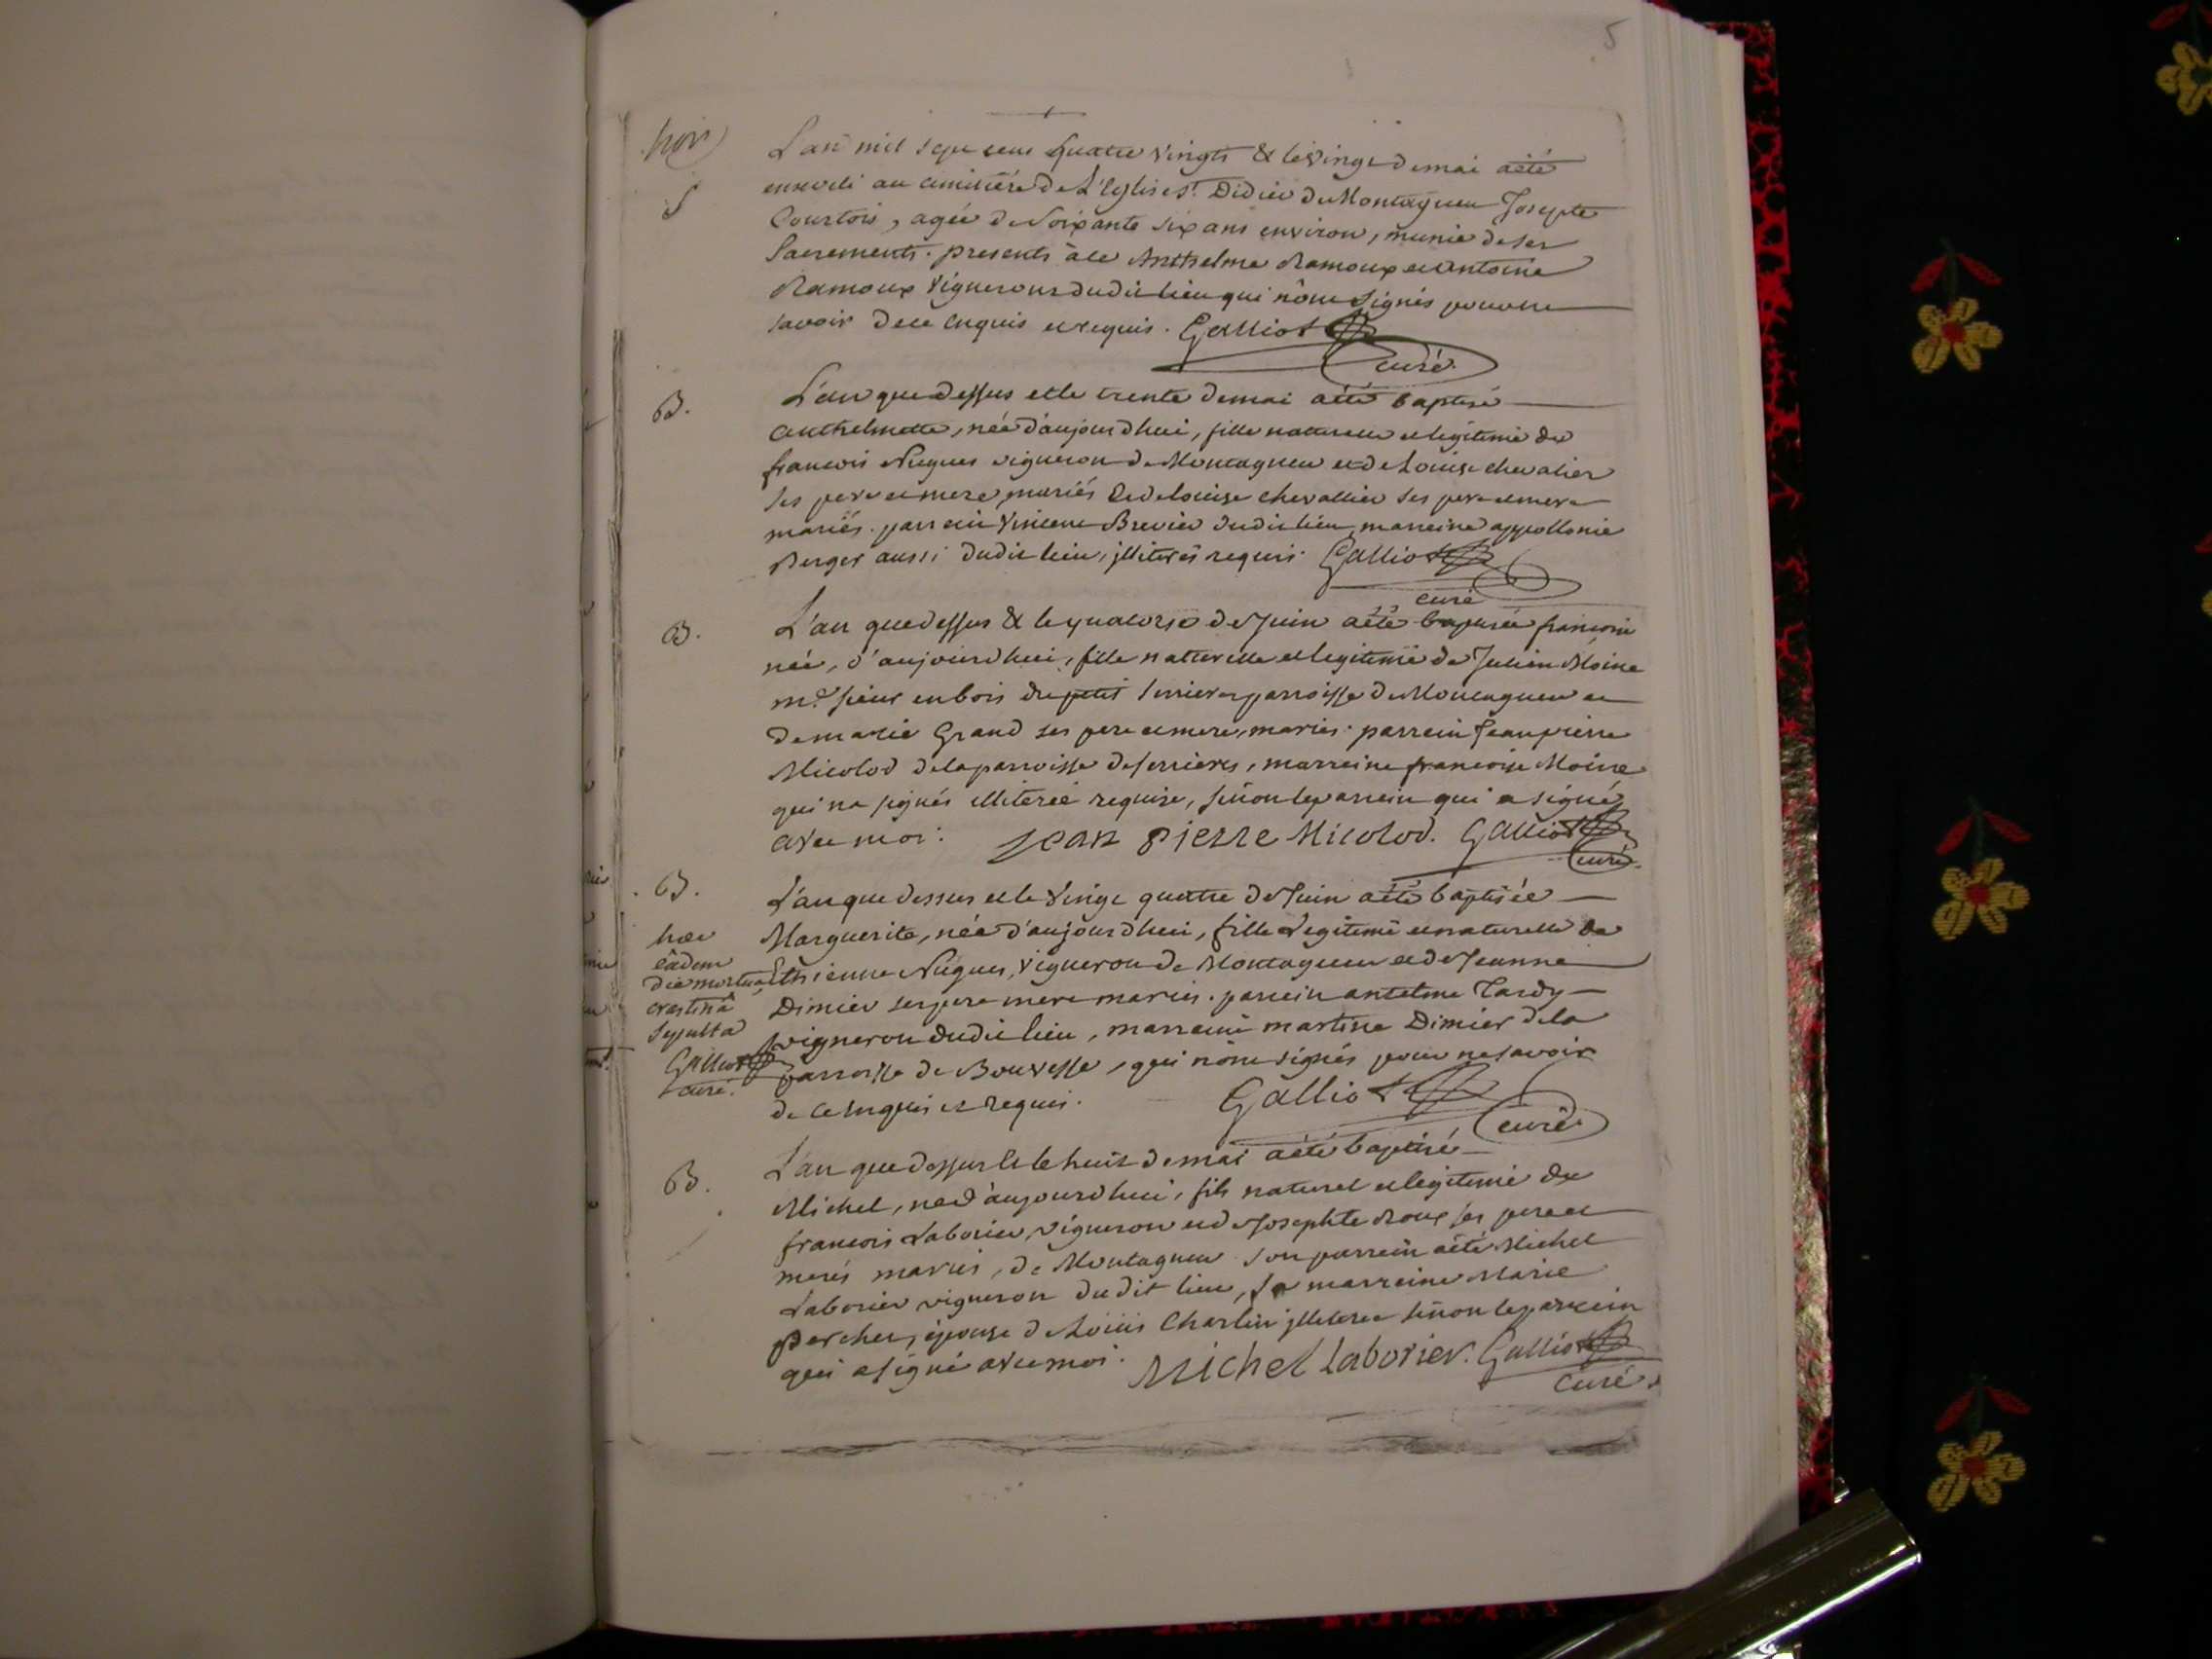 5
L'an mil sept cens quatre vingts & le vingt de mai a été
S
enseveli au cimitiére de L'Eglise St. Didier de Montagneu Josepte
Courtois, agée de soixante six ans environ, munie de ses
Sacrements. presents à ce Anthelme Ramoux et Antoine
Ramoux Vignerons dudit lieu qui n'ont signés pour ne
savoir de ce enquis et requis. Galliot
curé.
B.
L'an que dessus et le trente de mai a été baptisé
Anthelmette, née d'aujourdhui, fille naturelle et legitime de
francois Nugues vigneron de Montagneu et de Louise chevalier
ses pere et mere, mariés et de louise chevallier ses pere et mere
mariés. parrein Vincent Brevier dudit lieu, marreine appollonie
Berger aussi dudit lieu, jlliterés requis. Galliot
curé
B.
L'an que dessus & le quatorze de Juin a été baptisée francoise
née, d'aujourdhui, fille naturelle et legitime de Julien Moine
md. sieur en bois du petit serrieres parroisse de Montagneu et
de marie Grand ses pere et mere, mariés. parrein Jean pierre
Micolod de la parroisse de serrieres, marreine francoise Moine
qui na signés illiterée requise, sinon le parrein qui a signé
avec moi. Jean Pierre Micolod. Galliot
curé.
B.
L'an que dessus et le vingt quattre de Juin a été baptisée
Marguerite, née d'aujourdhui, fille Legitime et naturelle de
Ethienne Nugues, vigneron de Montagneu et de Jeanne
Dimier ses pere mere mariés. parrein antelme Tardy
vigneron dudit lieu, marreine martine Dimier de la
parroisse de Bouvesse, qui n'ont signés pour ne savoir
de ce enquis et requis. Galliot
curé.
hæc
eâdem
die mortua
crastinâ
sepulta
Galliot
curé.
B.
L'an que dessus et le huit de mai a été baptisé
Michel, né d'aujourdhui, fils naturel et legitime de
francois Laborier, vigneron et de Josephte Roux ses pere et
merés mariés, de Montagneu. son parrein a été Michel
Laborier vigneron dudit lieu, sa marreine Marie
Percher, épouse de Loüis Charlin jlliterée sinon le parrein
qui a signé avec moi. Michel laborier. Galliot
curé.